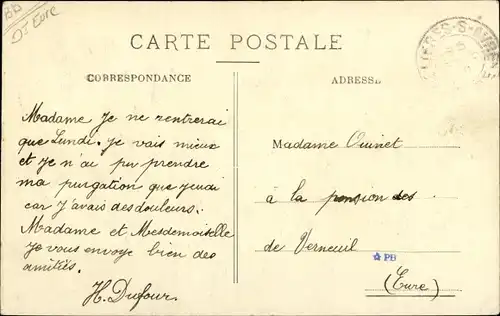 BB
Dt Eure
CARTE POSTALE
LIÈRES-S-AVRE
CORRESPONDANCE
ADRESSE
Madame Je ne rentrerai
que Lundi. je vais mieux
et je n'ai pu prendre
ma purgation que jeudi
car j'avais des douleurs.
Madame et Mesdemoiselle
Je vous envoye bien des
amitiés.
H. Dufour.
Madame Ouinet
à la pension des
de Verneuil
PB
(Eure)